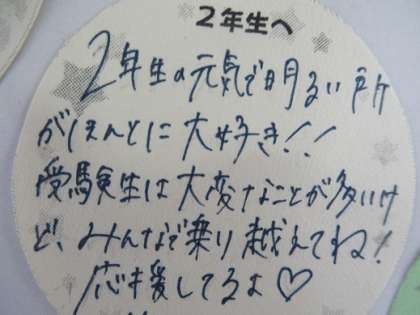 2年生へ
2年生の元気で明るい所
がほんとに大好き!!
受験生は大変なことが多いけ
ど、みんなで乗り越えてね!
応援してるよ♡